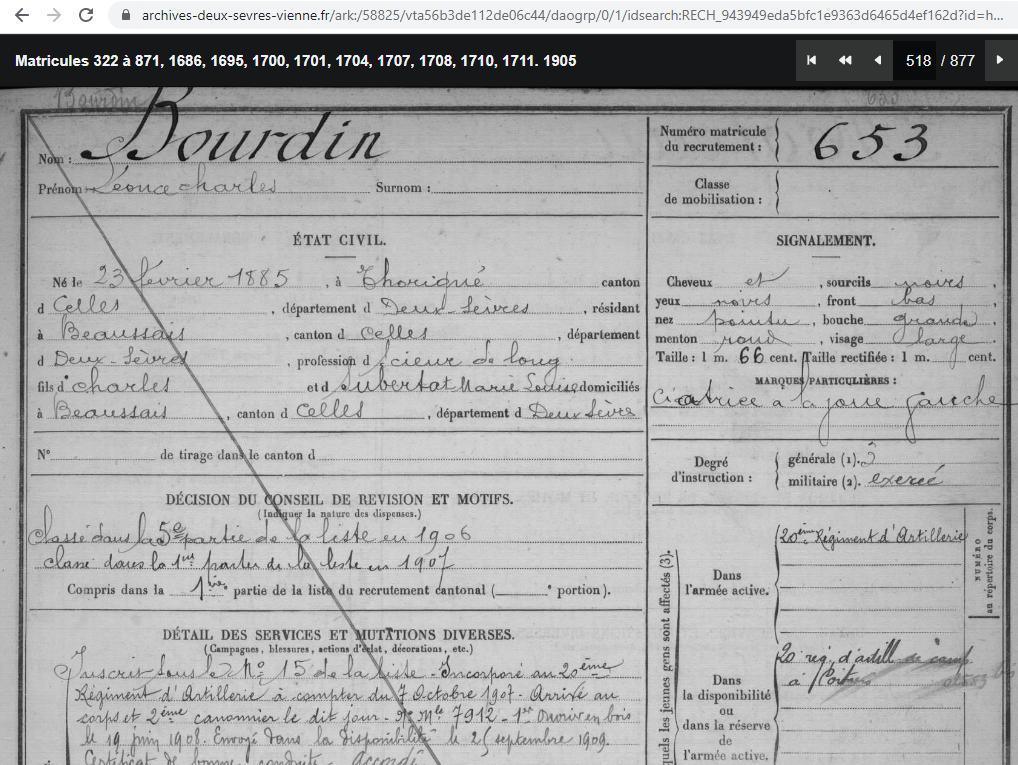 archives-deux-sevres-vienne.fr/ark:/58825/vta56b3de112de06c44/daogrp/0/1/idsearch:RECH_943949eda5bfc1e9363d6465d4ef162d?id=h...
Matricules 322 à 871, 1686, 1695, 1700, 1701, 1704, 1707, 1708, 1710, 1711. 1905
518 / 877
Bourdin 653
Nom : Bourdin
Prénom : Léonce charles Surnom :
Numéro matricule du recrutement : 653
Classe de mobilisation :
ÉTAT CIVIL.
Né le 23 février 1885, à Thorigné canton
d Celles, département d Deux-Sèvres, résidant
à Beaussais, canton d Celles, département
d Deux-Sèvres, profession d scieur de long
fils d charles et d Aubertot Marie Louise domiciliés
à Beaussais, canton d Celles, département d Deux Sèvres
N° de tirage dans le canton d
DÉCISION DU CONSEIL DE REVISION ET MOTIFS.
(Indiquer la nature des dispenses.)
Classé dans la 5e partie de la liste en 1906
classé dans la 1re partie de la liste en 1907
Compris dans la 1ière partie de la liste du recrutement cantonal ( e portion).
DÉTAIL DES SERVICES ET MUTATIONS DIVERSES.
(Campagnes, blessures, actions d'éclat, décorations, etc.)
Inscrit sous le N° 15 de la liste - Incorporé au 20ème
Régiment d'Artillerie à compter du 7 Octobre 1907 - Arrivé au
corps et 2ème canonnier le dit jour - N° Mle 7912 - 1er ouvrier en bois
le 19 juin 1908. Envoyé dans la disponibilité le 25 septembre 1909.
Certificat de bonne conduite - Accordé
SIGNALEMENT.
Cheveux et, sourcils noirs,
yeux noirs, front bas
nez pointu, bouche grande
menton rond, visage large
Taille : 1 m. 66 cent. Taille rectifiée : 1 m. cent.
MARQUES PARTICULIÈRES :
Cicatrice à la joue gauche
Degré d'instruction :
générale (1). 3
militaire (2). exercé
quels les jeunes gens sont affectés (3).
Dans l'armée active.
20ème Régiment d'Artillerie
NUMÉRO au répertoire du corps.
Dans la disponibilité ou dans la réserve de l'armée active.
20 rég. d'artill de camp
à Poitiers